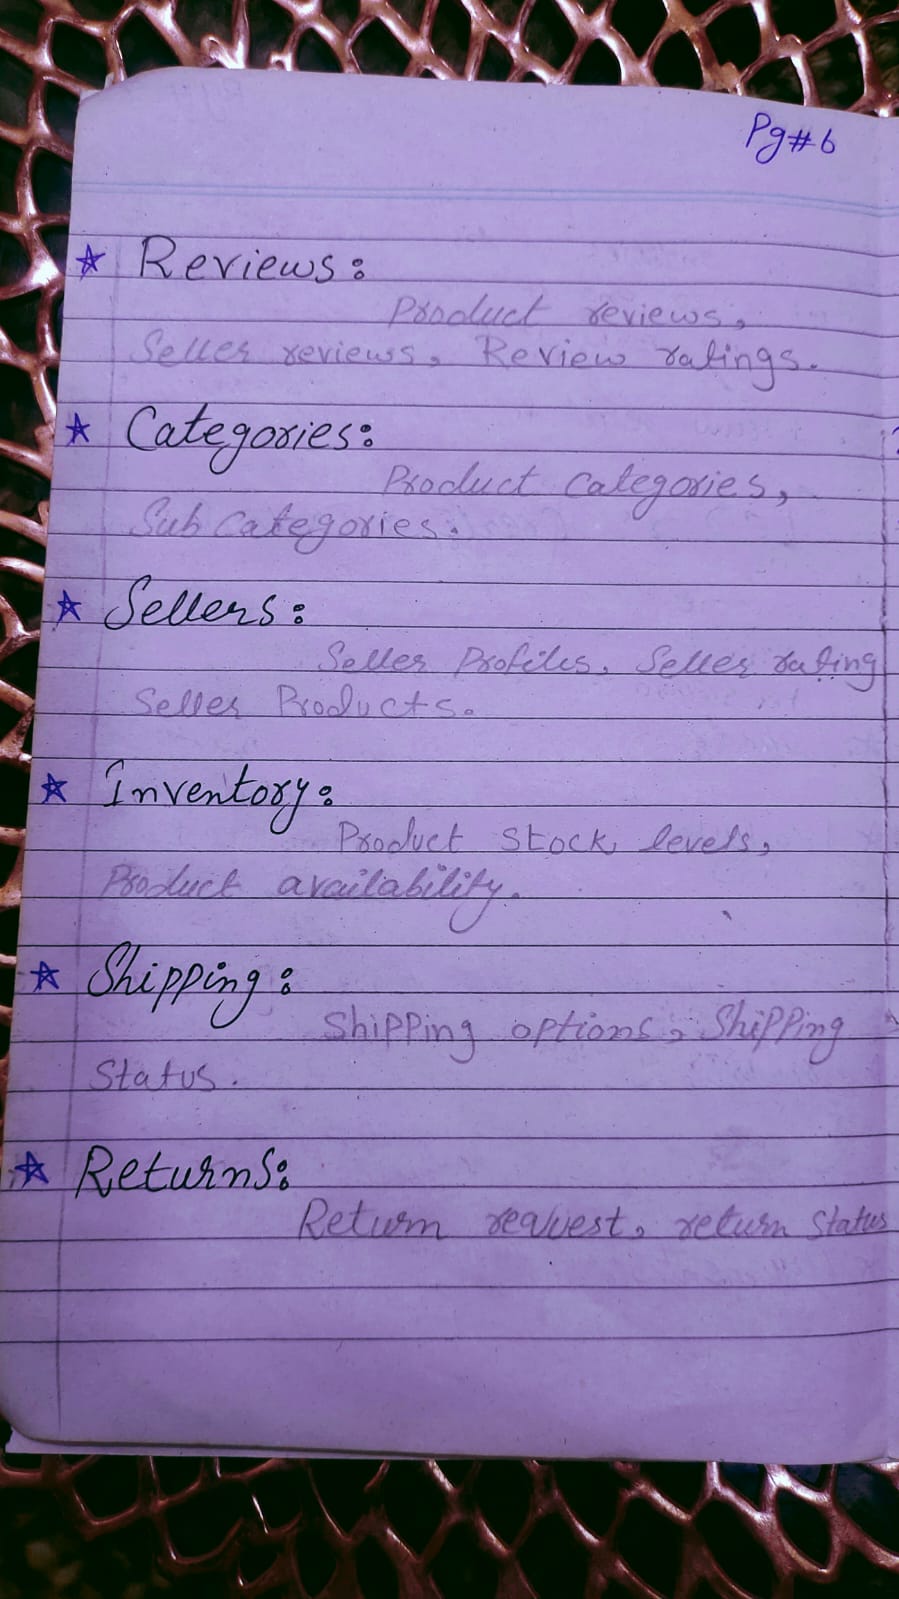 Pg#6
☆ Reviews:
Product reviews,
Seller reviews, Review ratings.
☆ Categories:
Product Categories,
Sub Categories.
☆ Sellers:
Seller Profiles, Seller rating
Seller Products.
☆ Inventory:
Product Stock levels,
Product availability.
☆ Shipping:
Shipping options, Shipping
Status.
☆ Returns:
Return request, return Status